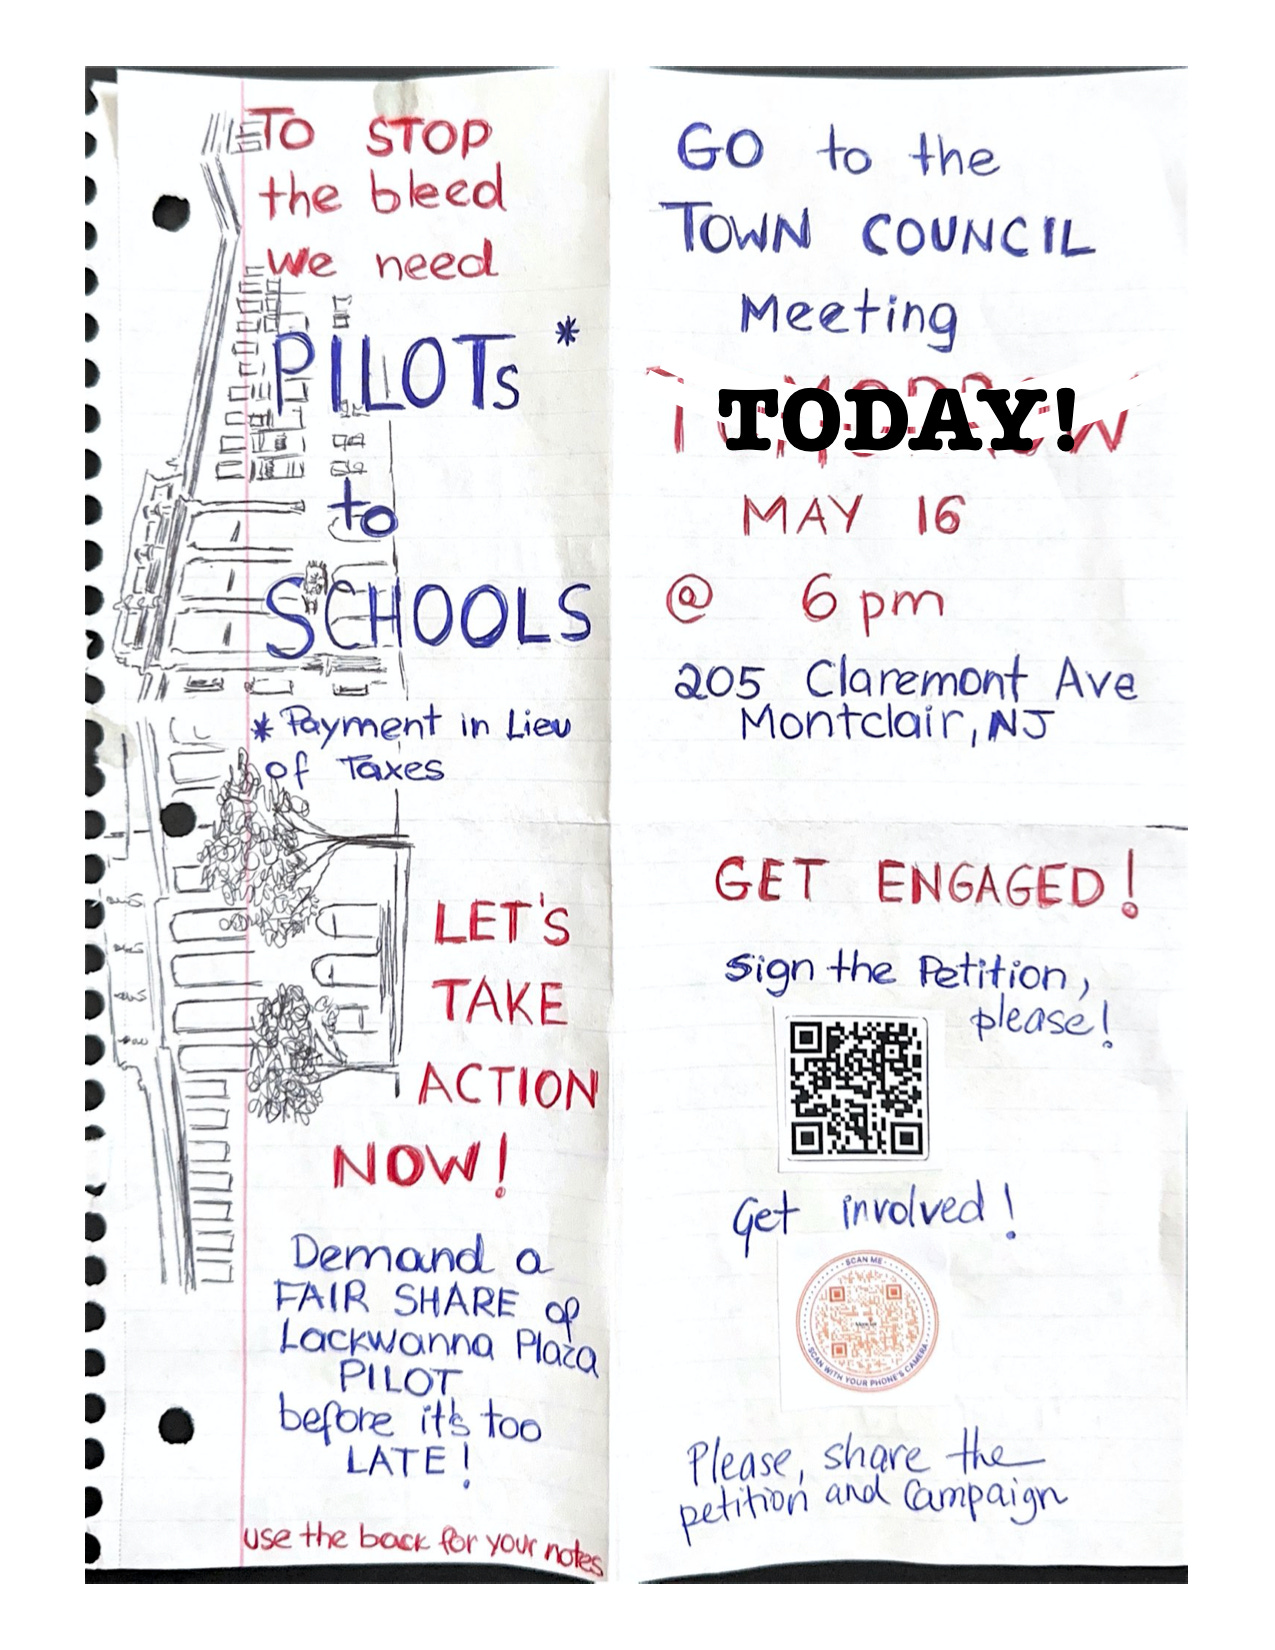 To STOP
the bleed
we need
PILOTs *
to
SCHOOLS
* Payment in Lieu
of Taxes
LET'S
TAKE
ACTION
NOW!
Demand a
FAIR SHARE of
Lackwanna Plaza
PILOT
before it's too
LATE!
use the back for your notes
GO to the
TOWN COUNCIL
Meeting
TODAY!
MAY 16
@ 6pm
205 Claremont Ave
Montclair, NJ
GET ENGAGED!
Sign the Petition,
please!
Get involved!
SCAN ME
SCAN WITH YOUR PHONE'S CAMERA
Please, share the
petition and Campaign